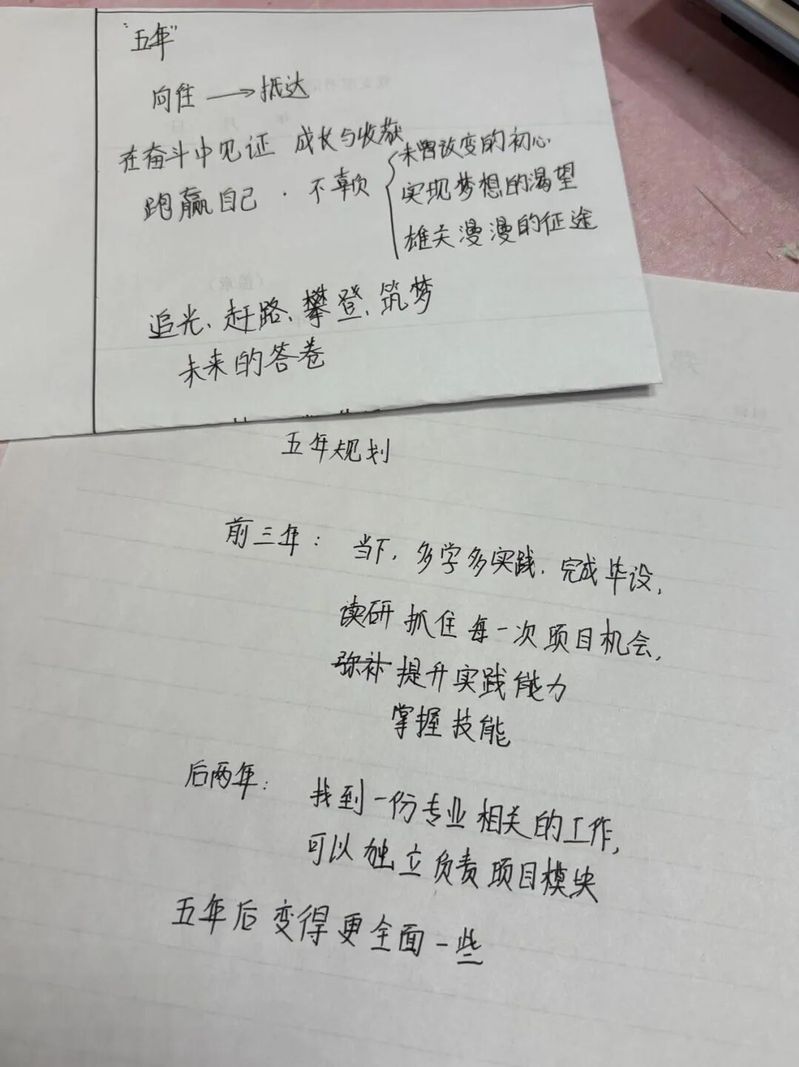 “五年”
向往 → 抵达
在奋斗中见证 成长与收获
跑赢自己 . 不辜负
未曾改变的初心
实现梦想的渴望
雄关漫漫的征途
追光、赶路、攀登、筑梦
未来的答卷
五年规划
前三年: 当下, 多学多实践. 完成毕设,
读研 抓住每一次项目机会,
弥补 提升实践能力
掌握技能
后两年: 找到一份专业相关的工作,
可以独立负责项目模块
五年后变得更全面一些